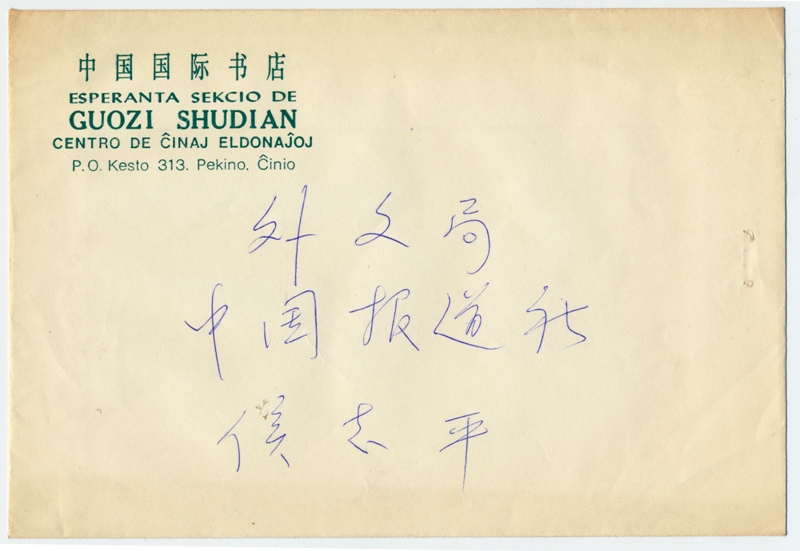 中国国际书店
ESPERANTA SEKCIO DE
GUOZI SHUDIAN
CENTRO DE ĈINAJ ELDONAĴOJ
P.O. Kesto 313. Pekino, Ĉinio
外文局
中国报道社
侯志平